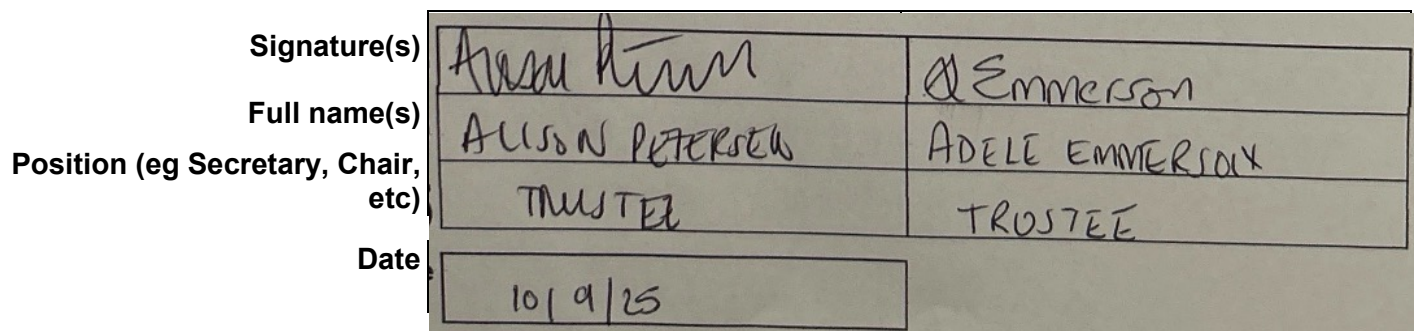 Signature(s)
A Emmerson
Full name(s)
ALISON PETERSEN
ADELE EMMERSON
Position (eg Secretary, Chair,
etc)
TRUSTEE
TRUSTEE
Date
10/9/25